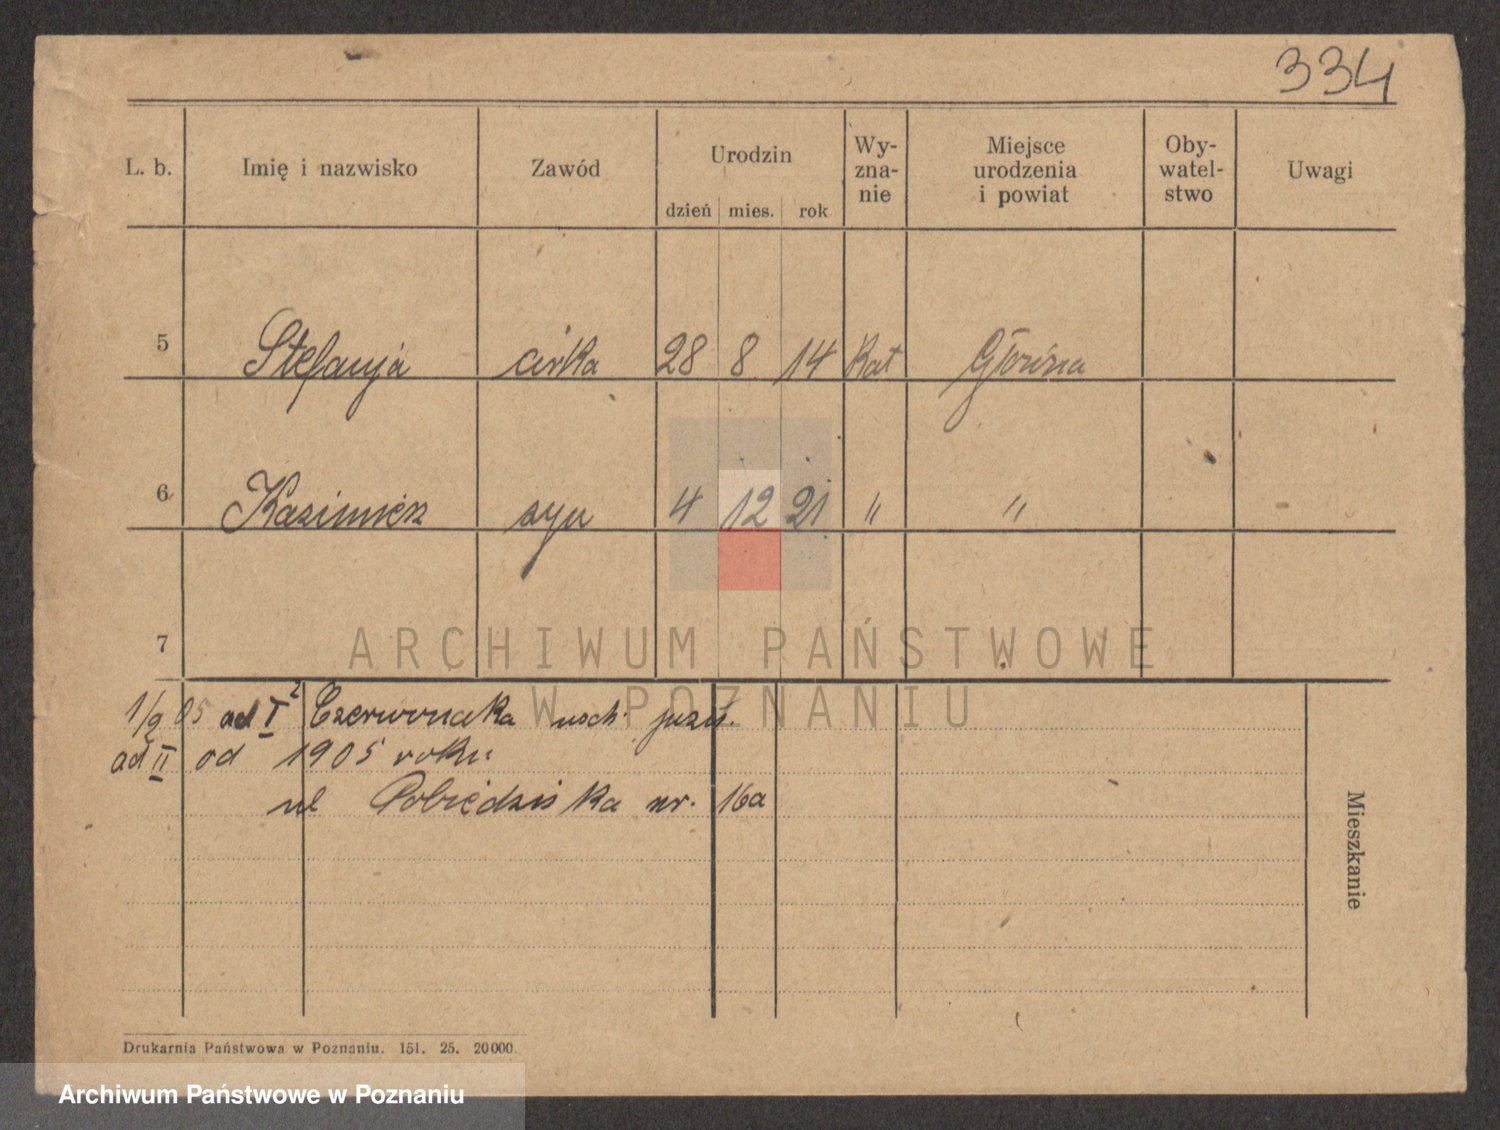 334
L. b. Imię i nazwisko Zawód Urodzin dzień mies. rok Wy-zna-nie Miejsce urodzenia i powiat Oby-watel-stwo Uwagi
5 Stefanja córka 28 8 14 Kat Główna
6 Kazimierz syn 4 12 21 " "
7
ARCHIWUM PAŃSTWOWE
W POZNANIU
1/2 05 ad I 2 Czerwonaka
ad II od 1905 roku
ul Pobiedziska nr. 16a
Mieszkanie
Drukarnia Państwowa w Poznaniu. 151. 25. 20000.
Archiwum Państwowe w Poznaniu